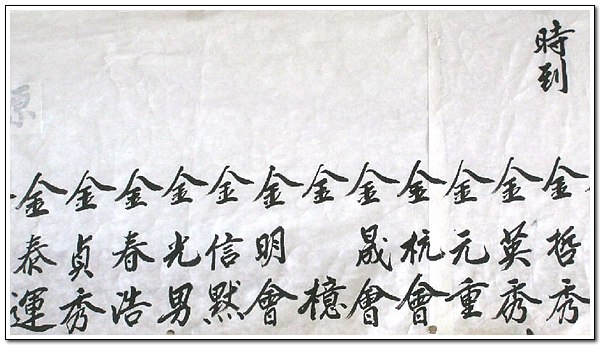 時到
金哲秀
金英秀
金元重
金杭會
金晟會
金檍
金明會
金信默
金光男
金春浩
金貞秀
金泰運